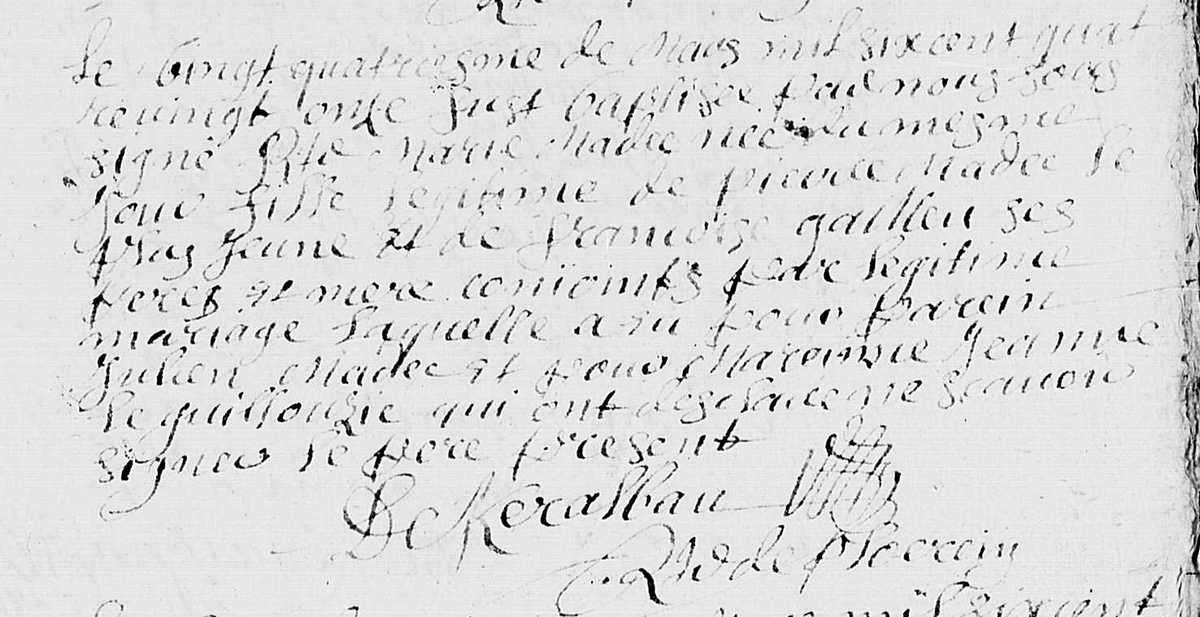 Le vingt quatriesme de Mars mil six cent quat
revingt onze fust baptisée par nous sous
signé Rtr Marie Madec née du mesme
jour fille legitime de pierre Madec le
plus jeune et de francoise gailleu ses
peres et mere conioints par legitime
mariage laquelle a eu pour parein
Julien Madec et pour Mareinne Jeanne
le guillouzic qui ont desclaré ne scauoir
signer le pere present
De Keralbau
Rtr de ploerein
mil six cent